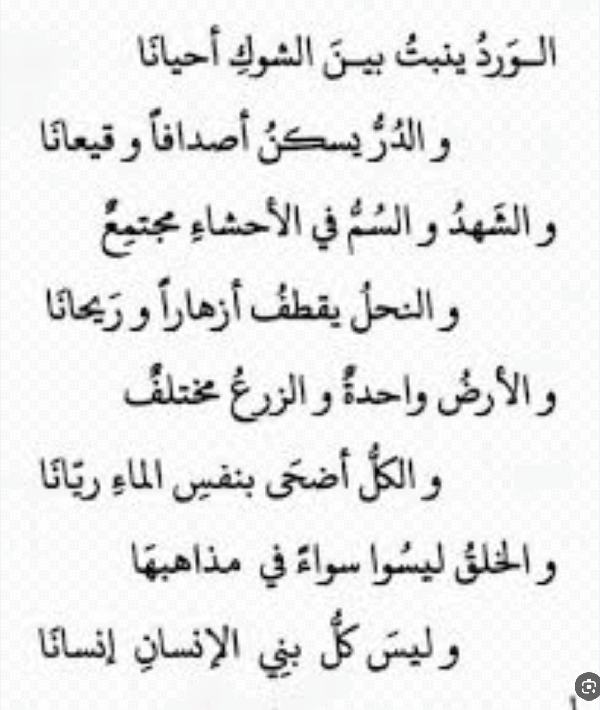 الـورَدُ ينبتُ بيـنَ الشوكِ أحيانَا
و الدُرُّ يسكنُ أصدافاً و قيعانَا
و الشَهدُ و السُمُّ في الأحشاءِ مجتمِعٌ
و النحلُ يقطفُ أزهاراً و رَيحانَا
و الأرضُ واحدةٌ و الزرعُ مختلفٌ
و الكلُّ أضحَى بنفسِ الماءِ ريّانَا
و الخلقُ ليسُوا سواءً في مذاهبهَا
و ليسَ كلُّ بنِي الإنسانِ إنسانَا